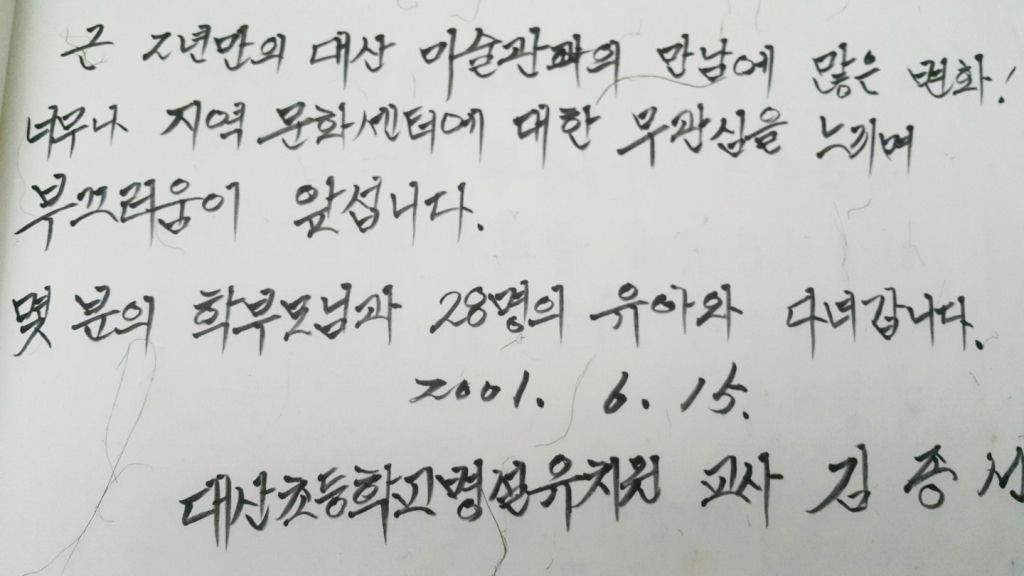 근 2년만의 대산 미술관과의 만남에 많은 변화!
너무나 지역 문화센터에 대한 무관심을 느끼며
부끄러움이 앞섭니다.
몇 분의 학부모님과 28명의 유아와 다녀갑니다.
2001. 6. 15.
대산초등학교병설유치원 교사 김종